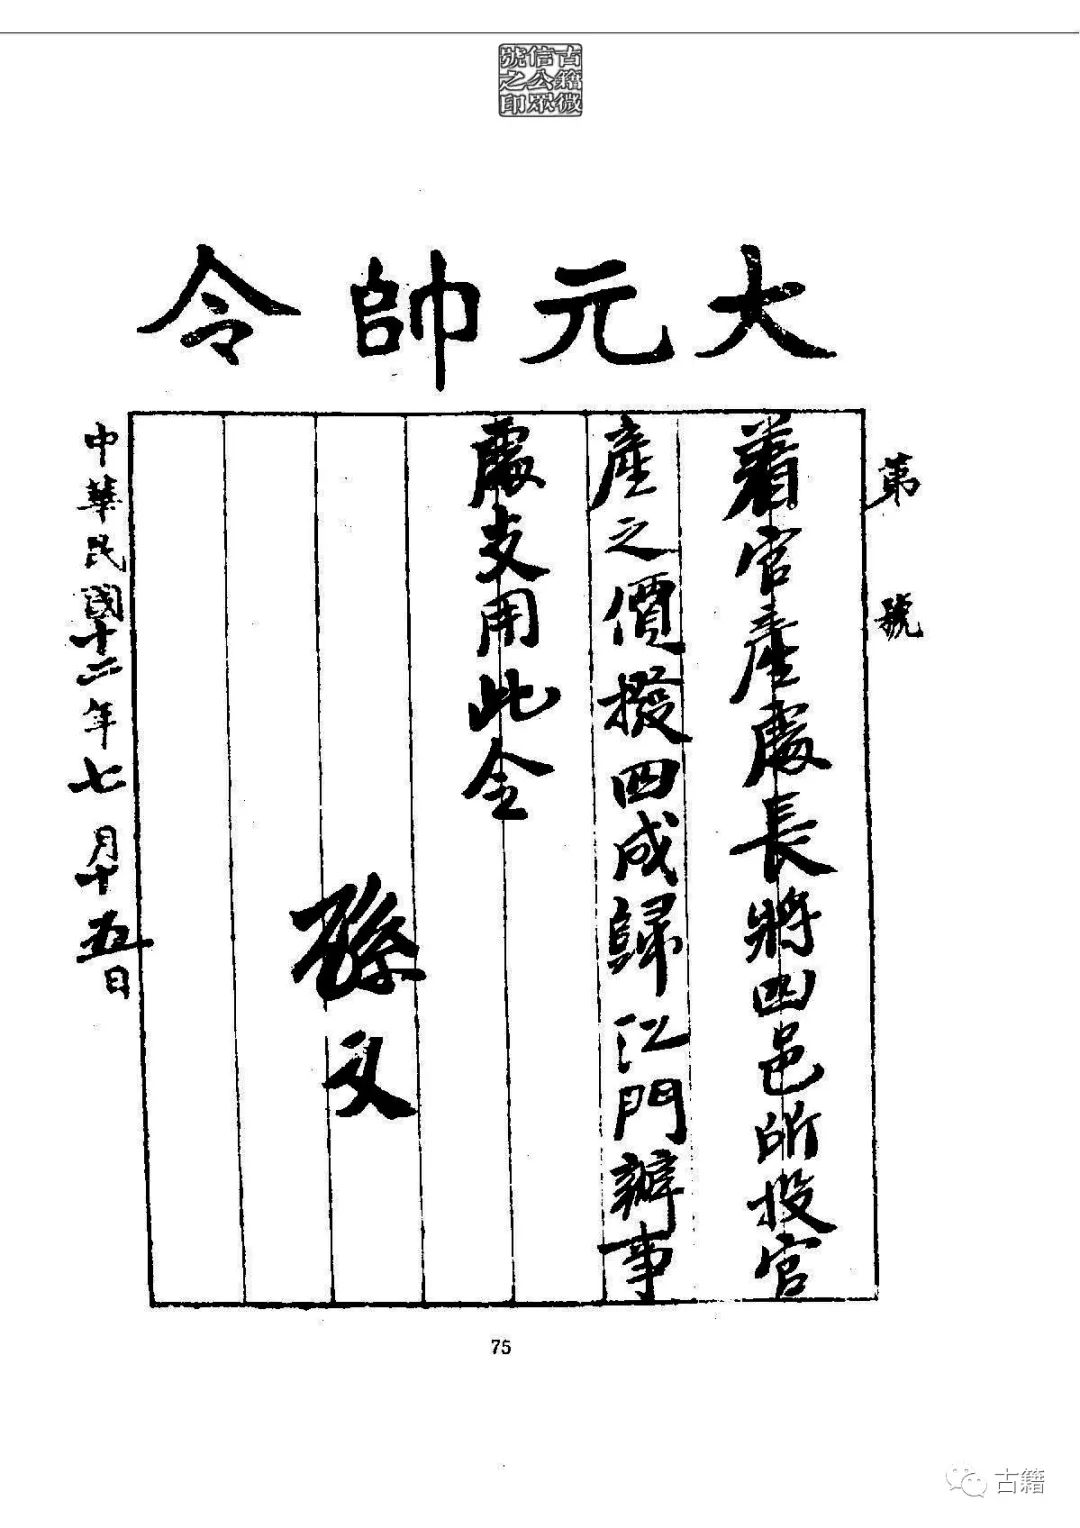 古籍微
信公眾
號之印
大元帥令
第 號
着官產處長將四邑所投官
產之價撥四成歸江門辦事
處支用此令
孫文
中華民國十二年七月十五日
75
古籍